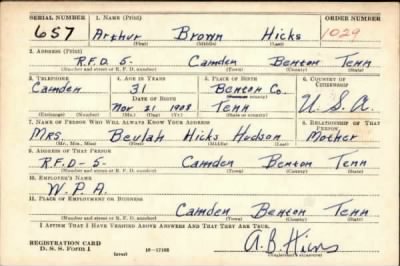 SERIAL NUMBER 1. NAME (Print) ORDER NUMBER
657 Arthur Brown Hicks 1029
(First) (Middle) (Last)
2. ADDRESS (Print)
R.F.D-5- Camden Benton Tenn
(Number and street or R. F. D. number) (Town) (County) (State)
3. TELEPHONE 4. AGE IN YEARS 5. PLACE OF BIRTH 6. COUNTRY OF CITIZENSHIP
Camden 31 Benton Co.
DATE OF BIRTH (Town or county)
Nov 21 1908 Tenn U.S.A.
(Exchange) (Number) (Mo.) (Day) (Yr.) (State or country)
7. NAME OF PERSON WHO WILL ALWAYS KNOW YOUR ADDRESS 8. RELATIONSHIP OF THAT PERSON
Mrs. Beulah Hicks Hudson Mother
(Mr., Mrs., Miss) (First) (Middle) (Last)
9. ADDRESS OF THAT PERSON
R.F.D-5- Camden Benton Tenn
(Number and street or R. F. D. number) (Town) (County) (State)
10. EMPLOYER'S NAME
W.P.A.
11. PLACE OF EMPLOYMENT OR BUSINESS
Camden Benton Tenn
(Number and street or R. F. D. number) (Town) (County) (State)
I AFFIRM THAT I HAVE VERIFIED ABOVE ANSWERS AND THAT THEY ARE TRUE.
REGISTRATION CARD A.B. Hicks
D. S. S. Form 1 (over) 16-17105 (Registrant's signature)